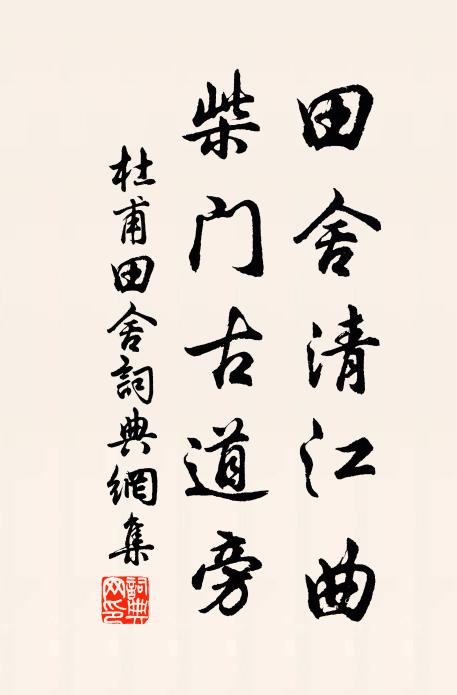 田舍清江曲
柴门古道旁
杜甫田舍詞典網集
詞典網印